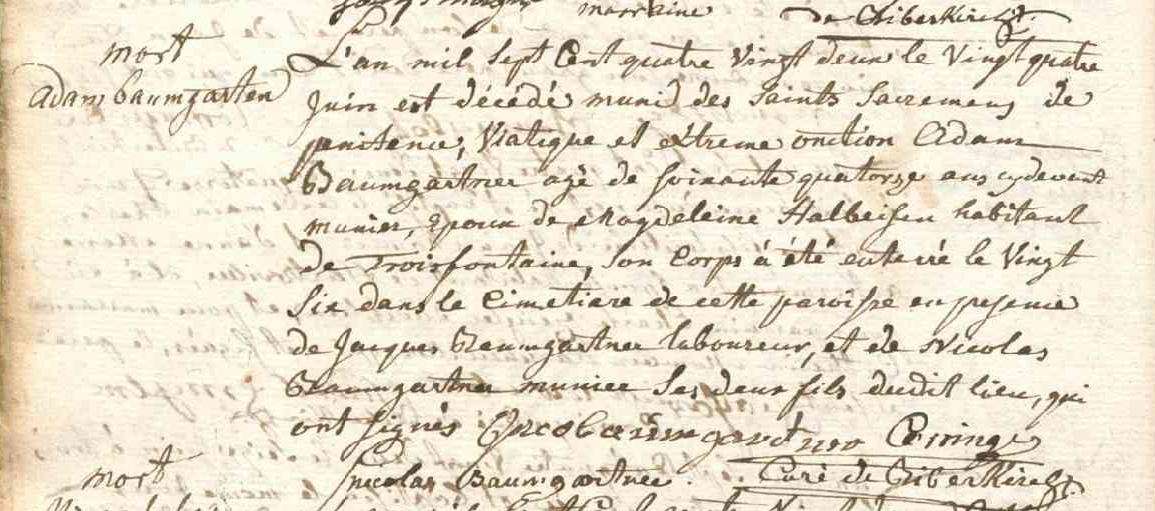 marraine de Biberkirch
mort
Adam baumgarten
L'an mil sept Cent quatre Vingt deux le Vingt quatre
juin est décédé munid des saints sacremens de
penitence, Viatique et extreme onction Adam
Baumgartner agé de soixante quatorze ans cydevant
munier, Epoux de Magdeleine Halbeisen habitant
de Troisfontaine, son Corps à été enterré le Vingt
Six dans le Cimetiere de cette paroisse en presence
de Jacques Baumgartner laboureur, et de Nicolas
Baumgartner munier ses deux fils dudit lieu, qui
ont signés Jacob Baumgartner
Nicolas Baumgartner. Curé de Biberkirch
mort